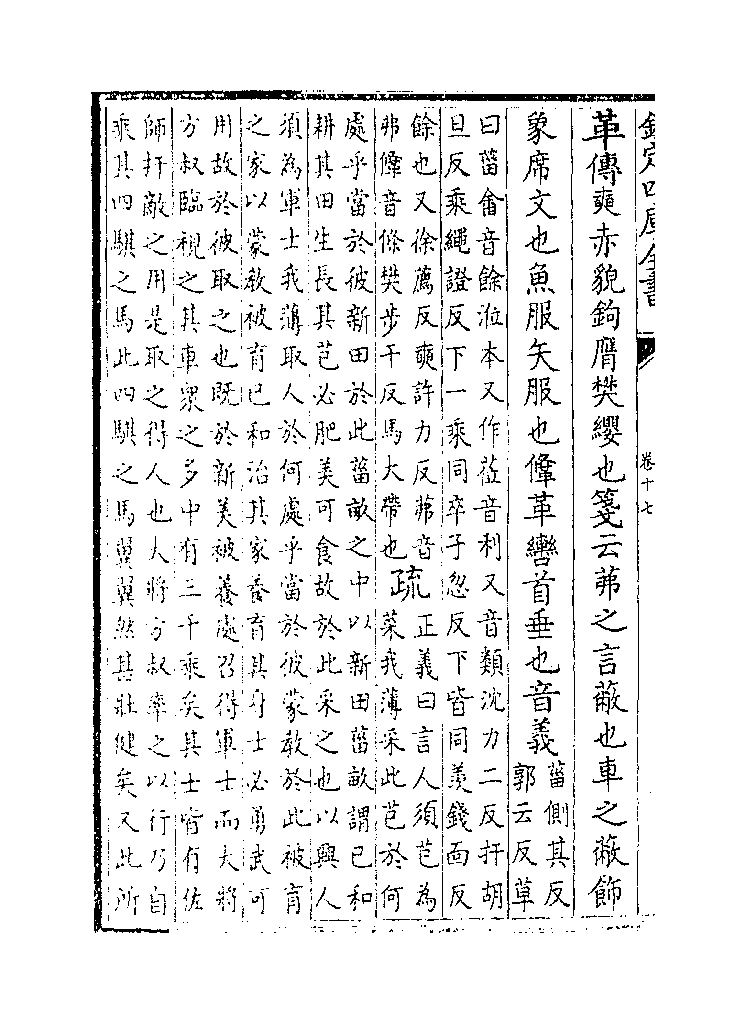 欽定四庫全書 卷十七
革傳奭赤貌鉤膺樊纓也箋云茀之言蔽也車之蔽飾
象席文也魚服矢服也鞗革轡首垂也音義菑側其反
郭云反草
曰菑畬音餘涖本又作莅音利又音類沈力二反扞胡
旦反乘繩證反下一乘同卒子忽反下皆同羨錢面反
餘也又徐薦反奭許力反茀音
弗鞗音條樊步干反馬大帶也疏正義曰言人須芑為
菜我薄采此芑於何
處乎當於彼新田於此菑畝之中以新田菑畝謂已和
耕其田生長其芑必肥美可食故於此采之也以興人
須為軍士我薄取人於何處乎當於彼蒙教於此被育
之家以蒙教被育已和治其家養育其身士必勇武可
用故於彼取之也既於新美被養處召得軍士而大將
方叔臨視之其車衆之多中有三千乘矣其士皆有佐
師扞敵之用是取之得人也大將方叔率之以行乃自
乘其四騏之馬此四騏之馬翼翼然其壯健矣又此所